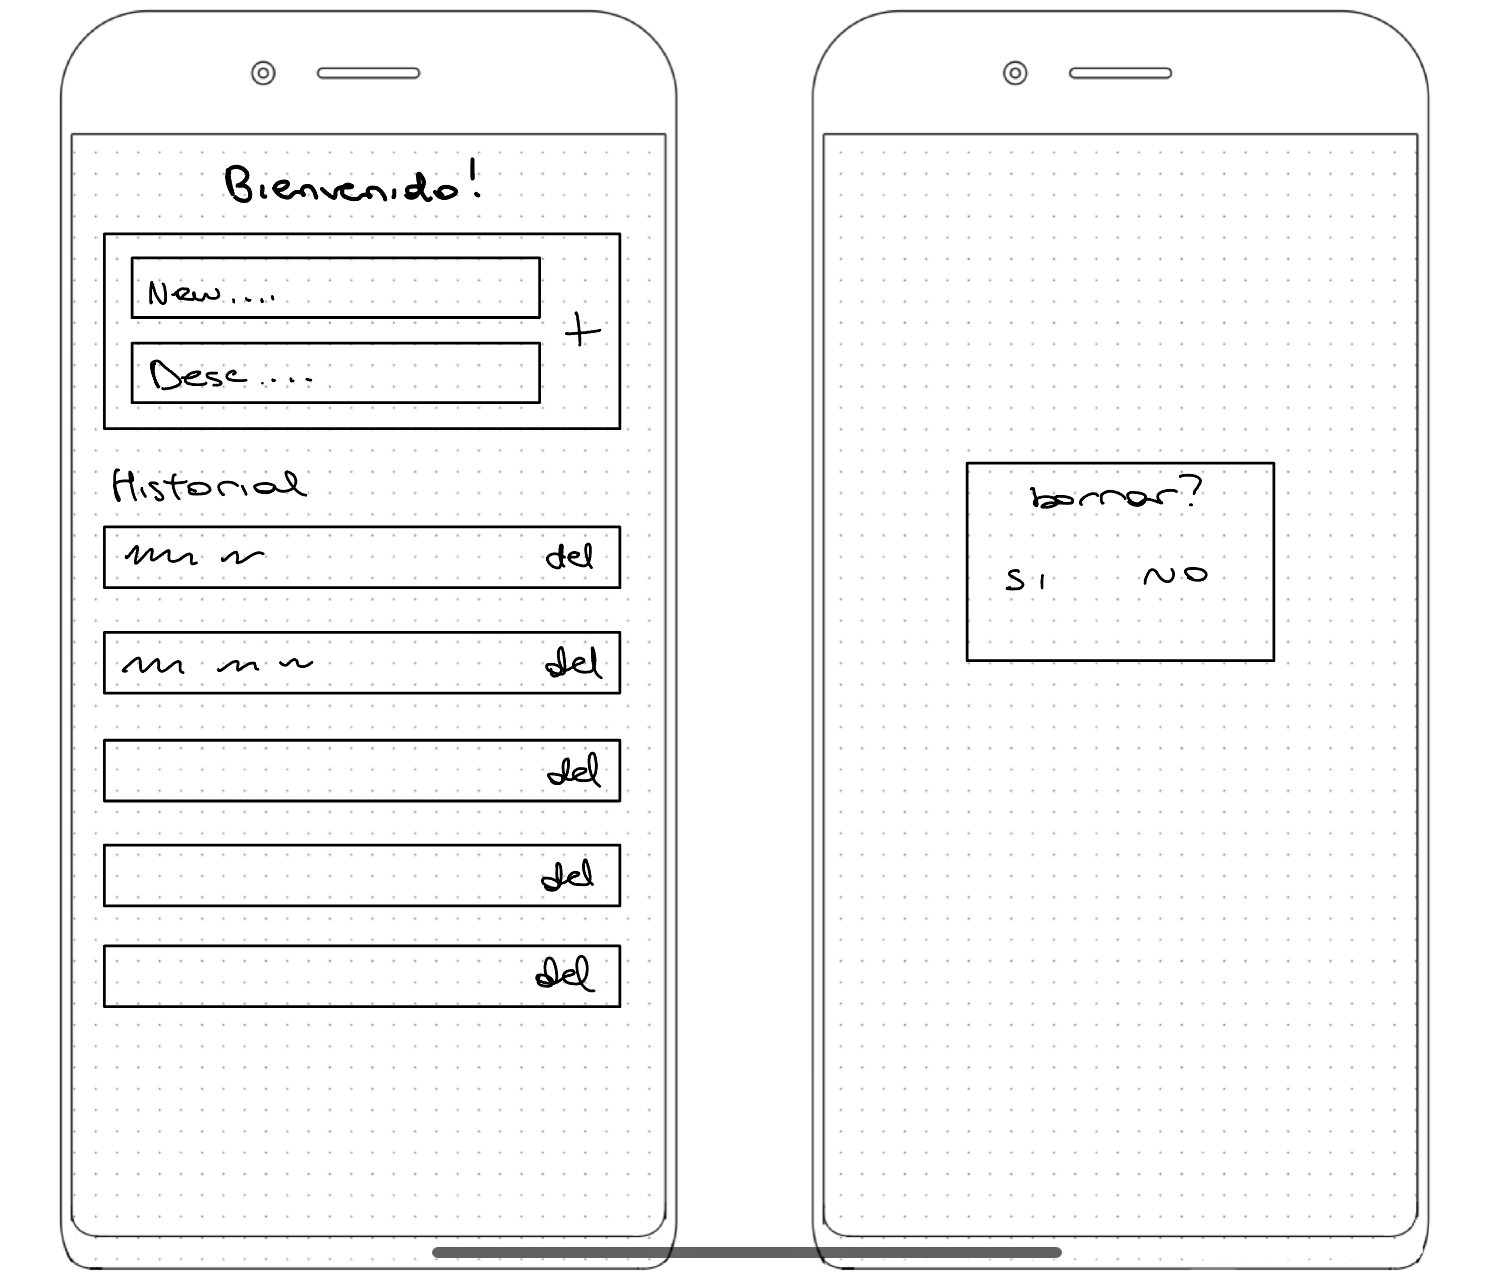 Bienvenido!
New....
+
Desc....
Historial
del
del
del
del
del
borrar?
SI NO